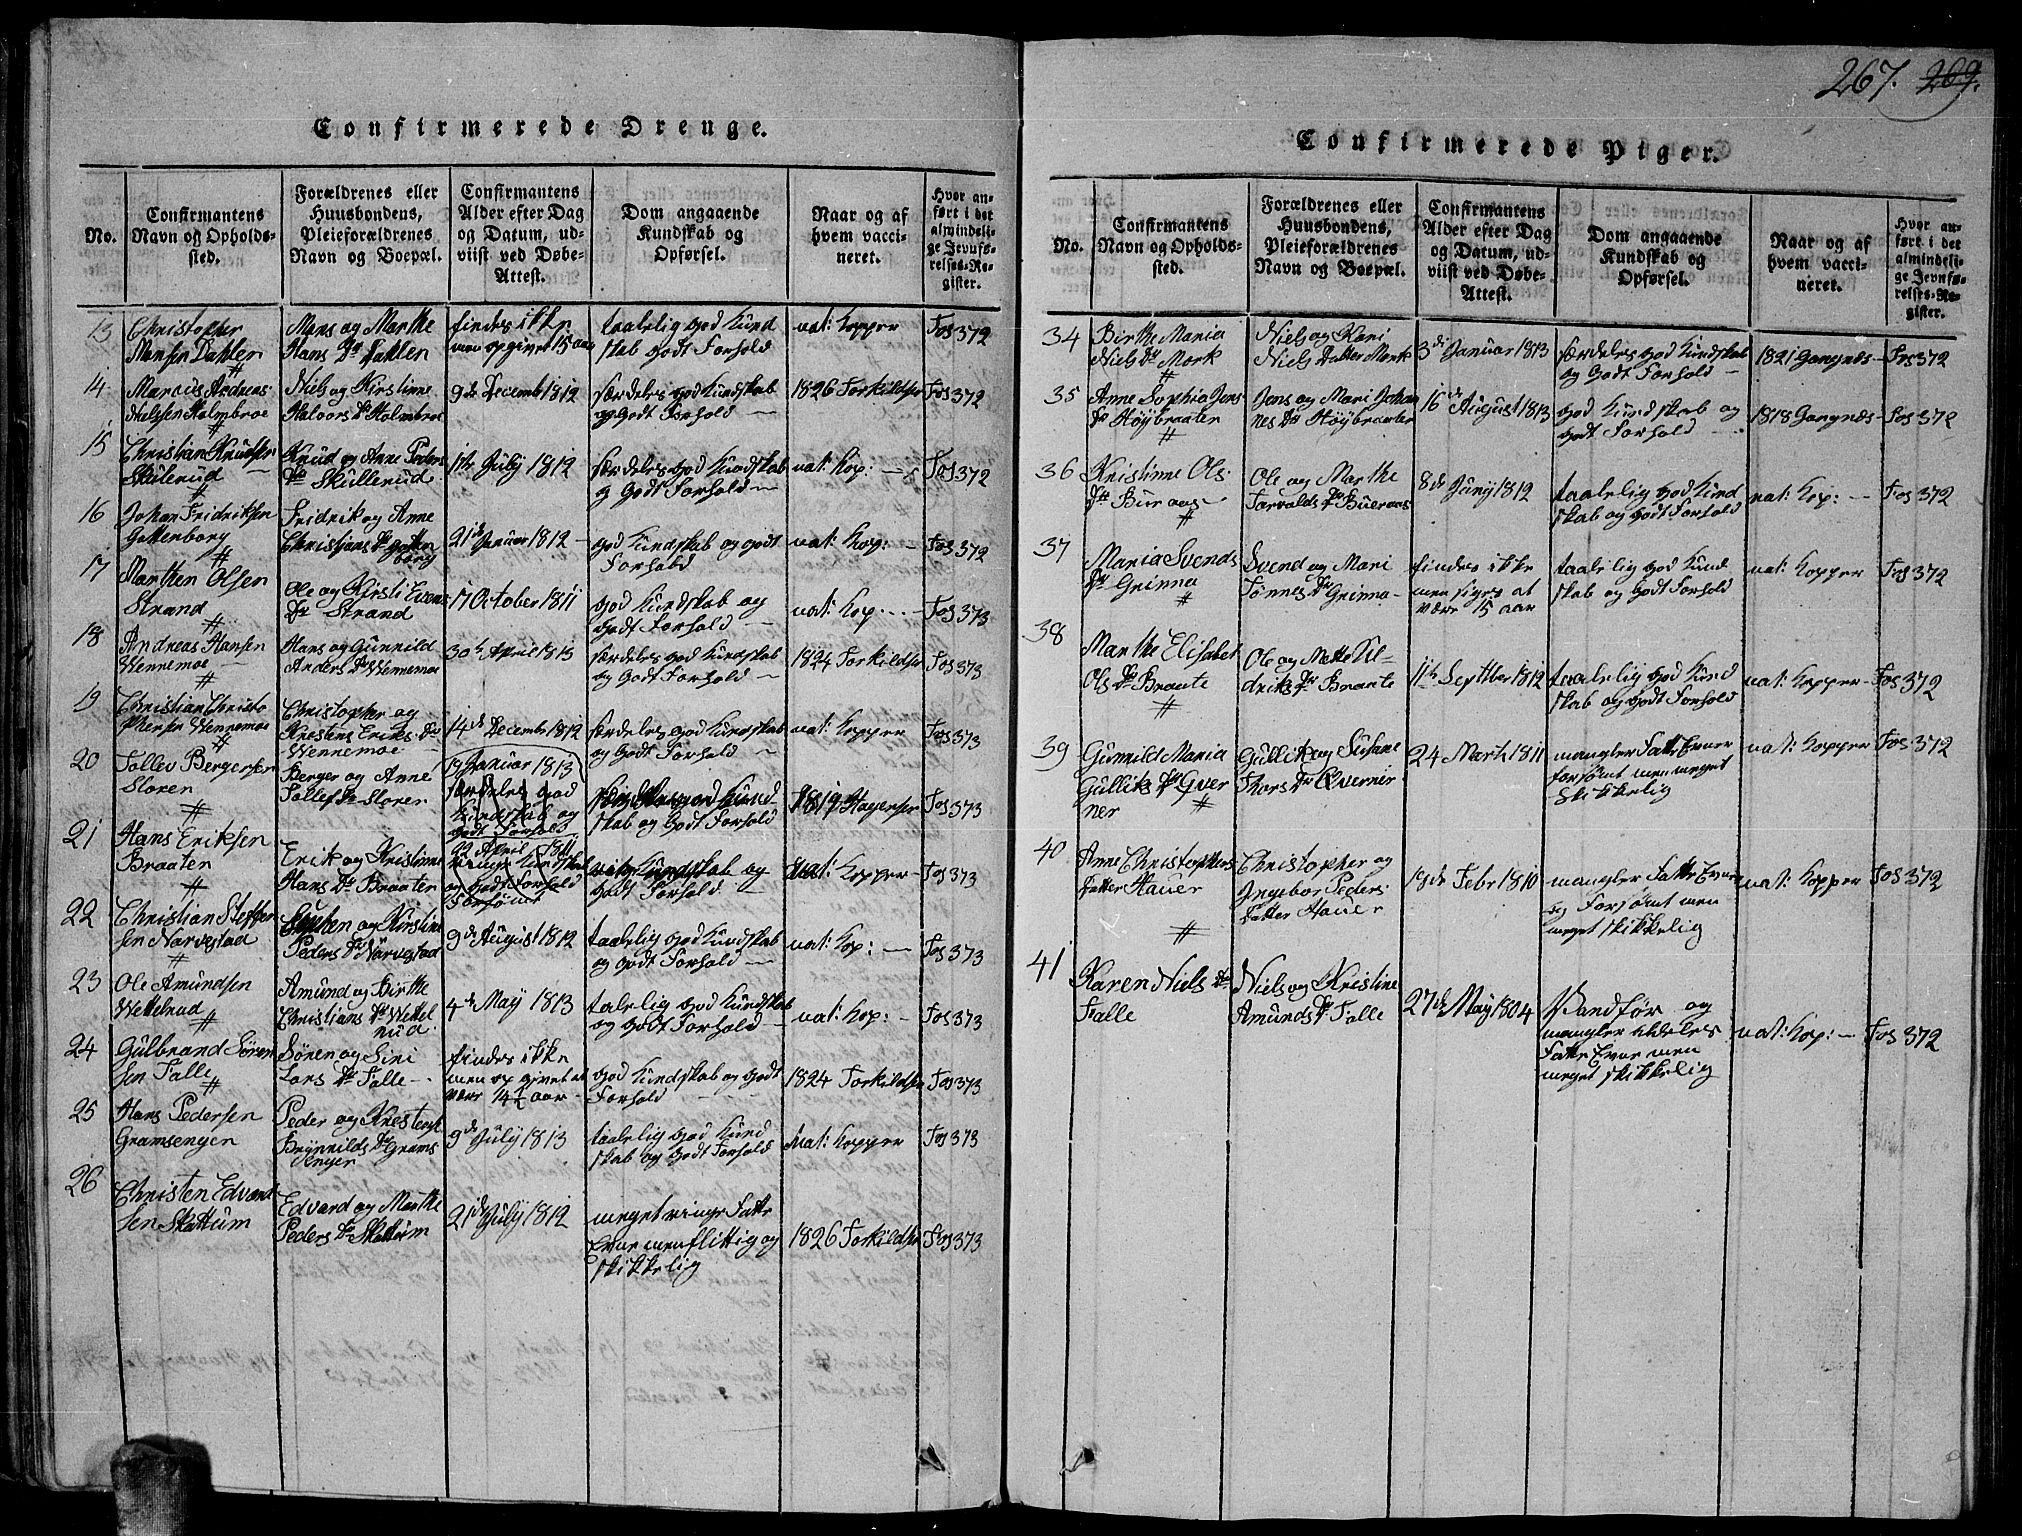 267. 269.
Confirmerede Drenge.
No.
Confirmantens
Navn og Opholds-
sted.
Forældrenes eller
Huusbondens,
Pleieforældrenes
Navn og Boepæl.
Confirmantens
Alder efter Dag
og Datum, ud-
viist ved Døbe-
Attest.
Dom angaaende
Kundskab og
Opførsel.
Naar og af
hvem vacci-
neret.
Hvor an-
ført i det
almindeli-
ge Jevnfø-
relses-Re-
gister.
13
Christopher
Hansen Dahlen
Hans og Marthe
Hans Dr Dahlen
findes ikke
men opgivet 15 aar
taalelig god Kund
skab godt Forhold
nat: Kopper
Fos 372
14
Marcus Andreas
Nielsen Holmbroe
Niels og Kirstinne
Halvors Dr Holmbroe
9de Decemb 1812
særdeles god Kundskab
og Godt Forhold
1826 Torkildsen
Fos 372
15
Christian Knudsen
Skulerud
Knud og Anne Peders
Dr Skullerud
1te July 1812
særdeles god Kundskab
og Godt Forhold
nat: Kop:
Fos 372
16
Johan Fridriksen
Gottenborg
Fridrik og Anne
Christians Dr Gotten
borg
21de Januar 1812
god Kundskab og godt
Forhold
nat: Kop:
Fos 372
17
Marthen Olsen
Strand
Ole og Kirsti Evens
Dr Strand
17 October 1811
god Kundskab og
Godt Forhold
nat: Kop.
Fos 373
18
Andreas Hansen
Wennemoe
Hans og Gunnild
Anders Dr Wennemoe
30te April 1813
særdeles god Kundskab
og Godt Forhold
1824 Torkildsen
Fos 373
19
Christian Christo
phersen Wennemoe
Christopher og
Kirsten Eriks Dr
Wennemoe
14de Decemb 1812
særdeles god Kundskab
og Godt Forhold
nat: Kopper
Fos 373
20
Tollev Bergersen
Sloren
Berger og Anne
Tollef Dr Sloren
19 Januar 1813
særdeles god
Kundskab og
Godt Forhold
god Kund-
skab og Godt Forhold
1819 Hagensen
Fos 373
21
Hans Eriksen
Braaten
Erik og Kristinne
Hans Dr Braaten
22 April 1811
ringe Kundskab
og Godt Forhold
Forsømt
Kundskab og
Godt Forhold
nat: Kopper
Fos 373
22
Christian Steffen
sen Narvestad
Steffen og Kirstine
Peders Dr Narvestad
9de August 1812
taalelig god Kundskab
og godt Forhold
nat: Kop:
Fos 373
23
Ole Amundsen
Wettelrud
Amund og Birthe
Christians Dr Wettel
rud
4de May 1813
talelig god Kundskab
og Godt Forhold
nat: Kop:
Fos 373
24
Gulbrand Søren
sen Falle
Søren og Siri
Lars Dr Falle
findes ikke
men op givet at
være 14½ aar
god Kundskab og godt
Forhold
1824 Torkildsen
Fos 373
25
Hans Pedersen
Gramsengen
Peder og Kresten
Brynnilds Dr Grams
enger
9de July 1813
taalelig god Kund
skab og Godt Forhold
Nat: Kopper
Fos 373
26
Christen Edvard
sen Skattum
Edvard og Marthe
Peders Dr Skattum
21de July 1812
meget ringe Fatte
Evne men flittig og
skikkelig
1826 Torkildsen
Fos 373
Confirmerede Piger.
No.
Confirmantens
Navn og Opholds-
sted.
Forældrenes eller
Huusbondens,
Pleieforældrenes
Navn og Boepæl.
Confirmantens
Alder efter Dag
og Datum, ud-
viist ved Døbe-
Attest.
Dom angaaende
Kundskab og
Opførsel.
Naar og af
hvem vacci-
neret.
Hvor an-
ført i det
almindeli-
ge Jevnfø-
relses-Re-
gister.
34
Birthe Maria
Niels Dr Mork
Niels og Kari
Niels Datter Mork
3di Januar 1813
særdeles god Kundskab
og Godt Forhold
1821 Gangnæs
Fos 372
35
Anne Sophia Jens
Dr Høybraaten
Jens og Mari Johan
nes Dr Høybraaten
16de August 1813
god Kundskab og
Godt Forhold
1818 Gangnæs
Fos 372
36
Kristinne Ols
Dr Buraas
Ole og Marthe
Torvalds Dr Bueraas
8de Juny 1812
taalelig god Kund
skab og Godt Forhold
nat: Kop:
Fos 372
37
Maria Svends
Dr Grinna
Svend og Mari
Tønnes Dr Grinna
findes ikke
men siges at
være 15 aar
taalelig god Kund
skab og Godt Forhold
nat: Kopper
Fos 372
38
Marthe Elisabet
Ols Dr Braate
Ole og Mette
Dr Braate
11te Septber 1812
taalelig god Kund
skab og Godt Forhold
nat: Kopper
Fos 372
39
Gunnild Maria
Gulliks Dr Qver
ner
Gullik og Susane
Thors Dr Qverner
24 Marts 1811
mangler Fatte Evner
forsømt men meget
skikkelig
nat: Kopper
Fos 372
40
Anne Christophers
Datter Hauer
Christopher og
Ingebor Peders
Datter Hauer
19de Febr 1810
mangler Fatte Evner
og Forsømt men
meget skikkelig
nat: Kopper
Fos 372
41
Karen Niels Dr
Falle
Niels og Kristine
Amunds Dr Falle
27de May 1804
Vandfør og
mangler aldeles
Fatte Evne men
meget skikkelig
nat: Kop:
Fos 372